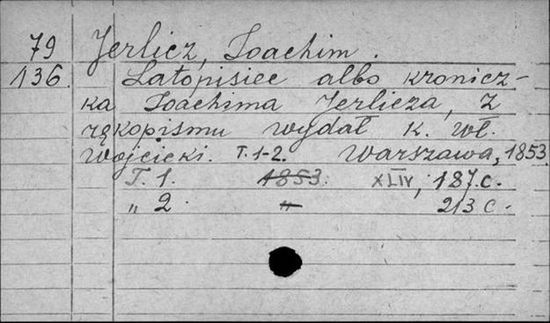 79 Jerlicz, Joachim.
136. Latopisiec albo kronicz-
ka Joachima Jerlicza, z
rękopismu wydał K. Wł.
Wojcicki. T. 1-2. Warszawa, 1853.
T. 1. 1853. XLIV, 187 c.
„ 2. „ 213 c.